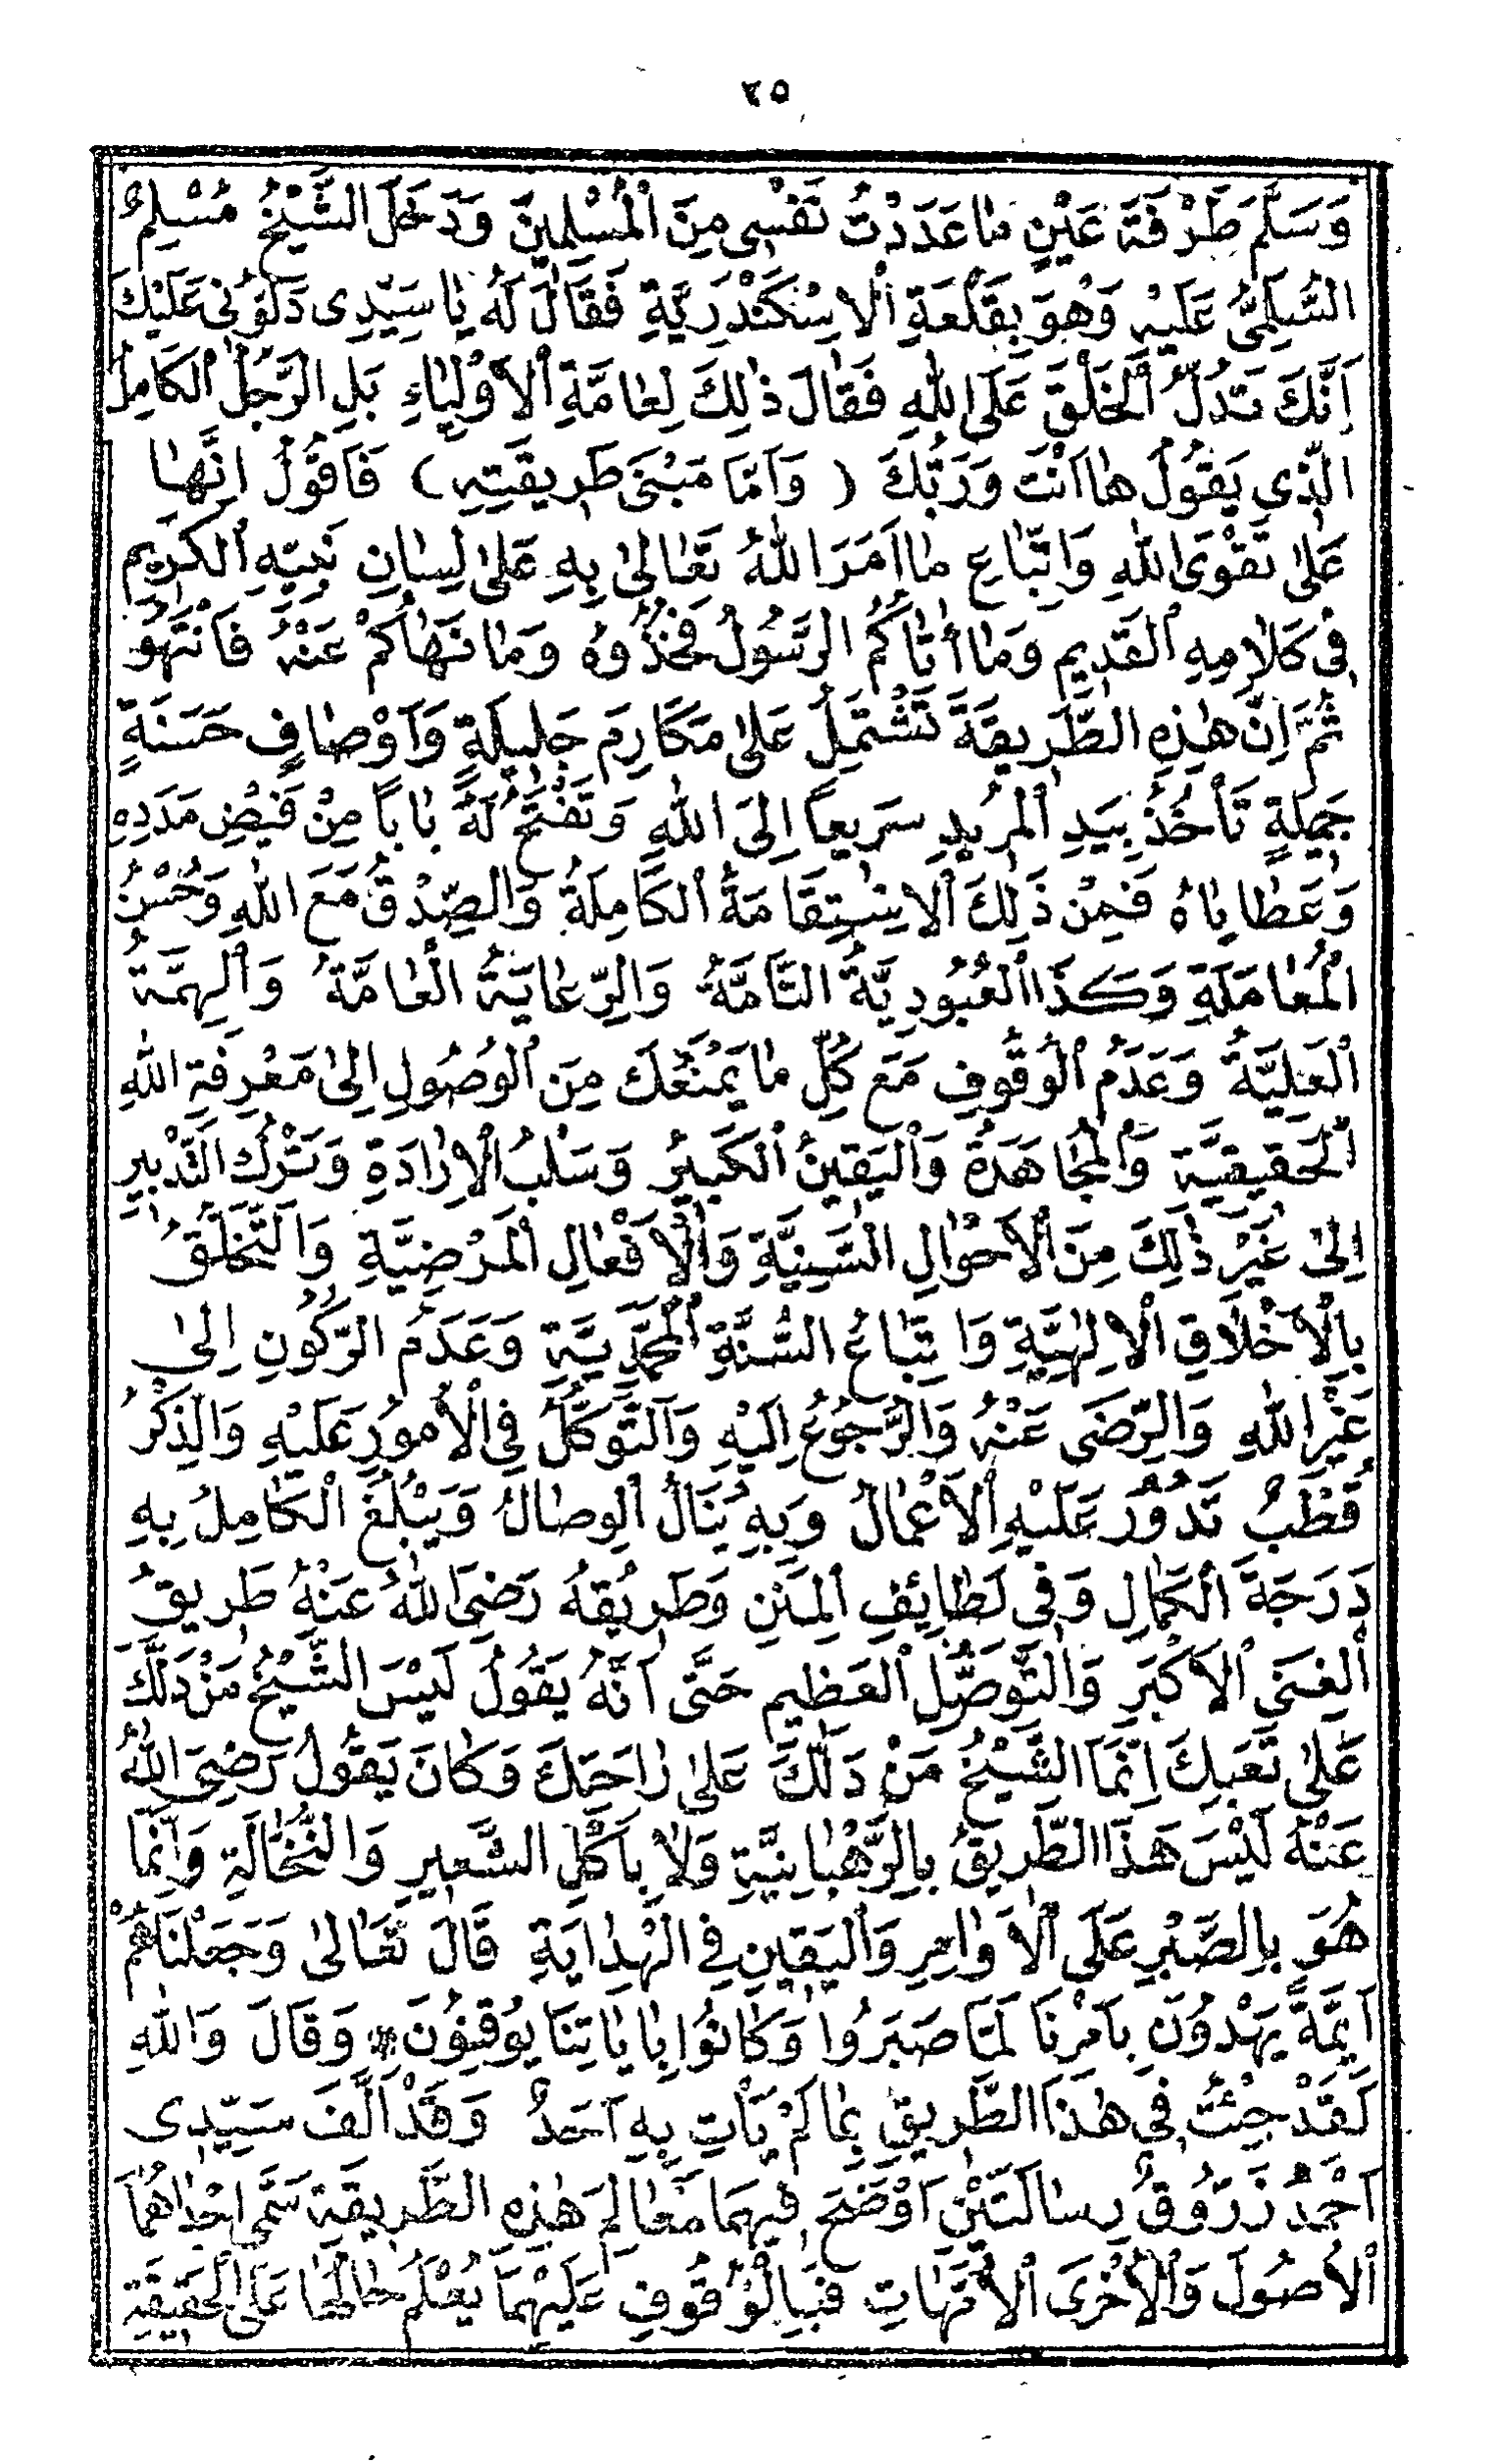 ٢٥
وَسَلَّمَ طَرْفَةَ عَيْنٍ مٰا عَدَدْتُ نَفْسِى مِنَ الْمُسْلِمِينَ وَدَخَلَ الشَّيْخُ مُسْلِمُ
السُّلَمِىُّ عَلَيْهِ وَهُوَ بِقَلْعَةِ الْاِسْكَنْدَرِيَّةِ فَقَالَ لَهُ يٰا سَيِّدِى دَلَّوُنِى عَلَيْكَ
اَنَّكَ تَدُلُّ الْخَلْقَ عَلَى اللهِ فَقٰالَ ذٰلِكَ لِعٰامَّةِ الْاَوْلِيٰاءِ بَلِ الرَّجُلُ الْكَامِلُ
الَّذِى يَقُولُ هٰا اَنْتَ وَرَبُّكَ ( وَاَمَّا مَبْنَى طَرِيقَتِهِ ) فَاَقُولُ اِنَّهٰا
عَلىٰ تَقْوَى اللهِ وَاتِّبٰاعِ مٰا اَمَرَ اللهُ تَعٰالىٰ بِهِ عَلىٰ لِسٰانِ نَبِيِّهِ الْكَرِيمِ
فِى كَلٰامِهِ الْقَدِيمِ وَمٰا اٰتٰاكُمُ الرَّسُولُ فَخُذُوهُ وَمٰا نَهٰاكُمْ عَنْهُ فَانْتَهُو
ثُمَّ اِنَّ هٰذِهِ الطَّرِيقَةَ تَشْتَمِلُ عَلىٰ مَكَارِمَ جَلِيلَةٍ وَاَوْصٰافٍ حَسَنَةٍ
جَمِيلَةٍ تَأْخُذُ بِيَدِ الْمُرِيدِ سَرِيعاً اِلَى اللهِ وَتَفْتَحُ لَهُ بٰاباً مِنْ فَيْضِ مَدَدِهِ
وَعَطٰايٰاهُ فَمِنْ ذٰلِكَ الْاِسْتِقَامَةُ الْكَامِلَةُ وَالصِّدْقُ مَعَ اللهِ وَحُسْنُ
الْمُعٰامَلَةِ وَكَذَا الْعُبُودِيَّةُ التَّامَّةُ وَالرِّعٰايَةُ الْعٰامَّةُ وَالْهِمَّةُ
الْعَلِيَّةُ وَعَدَمُ الْوُقُوفِ مَعَ كُلِّ مٰا يَمْنَعُكَ مِنَ الْوُصُولِ اِلىٰ مَعْرِفَةِ اللهِ
الْحَقِيقِيَّةِ وَالْمُجٰاهَدَةُ وَالْيَقِينُ الْكَبِيرُ وَسَلْبُ الْاِرٰادَةِ وَتَرْكُ التَّدْبِيرِ
اِلىٰ غَيْرِ ذٰلِكَ مِنَ الْاَحْوٰالِ السَّنِيَّةِ وَالْاَفْعٰالِ الْمَرْضِيَّةِ وَالتَّخَلُّقُ
بِالْاَخْلٰاقِ الْاِلٰهِيَّةِ وَاِتِّبٰاعُ السُّنَّةِ الْمُحَمَّدِيَّةِ وَعَدَمُ الرُّكُونِ اِلىٰ
غَيْرِ اللهِ وَالرِّضَى عَنْهُ وَالرُّجُوعُ اِلَيْهِ وَالتَّوَكُّلُ فِى الْاُمُورِ عَلَيْهِ وَالذِّكْرُ
قُطْبٌ تَدُورُ عَلَيْهِ الْاَعْمٰالُ وَبِهِ يُنَالُ الْوِصٰالُ وَيَبْلُغُ الْكَامِلُ بِهِ
دَرَجَةَ الْكَمٰالِ وَفِى لَطٰائِفِ الْمِنَنِ وَطَرِيقُهُ رَضِىَ اللهُ عَنْهُ طَرِيقُ
الْغِنَى الْاَكْبَرِ وَالتَّوَصُّلِ الْعَظِيمِ حَتَّى اَنَّهُ يَقُولُ لَيْسَ الشَّيْخُ مَنْ دَلَّكَ
عَلىٰ تَعَبِكَ اِنَّمَا الشَّيْخُ مَنْ دَلَّكَ عَلىٰ رٰاحَتِكَ وَكَانَ يَقُولُ رَضِىَ اللهُ
عَنْهُ لَيْسَ هَذَا الطَّرِيقُ بِالرَّهْبٰانِيَّةِ وَلٰا بِاَكْلِ الشَّعِيرِ وَالنُّخَالَةِ وَاِنَّمَا
هُوَ بِالصَّبْرِ عَلَى الْاَوٰامِرِ وَالْيَقِينِ فِى الْهِدٰايَةِ قَالَ تَعَالىٰ وَجَعَلْنَاهُمْ
اَئِمَّةً يَهْدُونَ بِاَمْرِنَا لَمَّا صَبَرُوا وَكَانُوا بِاٰيٰاتِنَا يُوقِنُونَ * وَقَالَ وَاللهِ
لَقَدْ جِئْتُ فِى هٰذَا الطَّرِيقِ بِمٰا لَمْ يَأْتِ بِهِ اَحَدٌ وَقَدْ اَلَّفَ سَيِّدِى
اَحْمَدُ زَرُّوقُ رِسٰالَتَيْنِ اَوْضَحَ فِيهِمَا مَعٰالِمَ هٰذِهِ الطَّرِيقَةِ سَمَّى اِحْدٰاهُمَا
الْاُصُولَ وَالْاُخْرَى الْاُمَّهٰاتِ فَبِالْوُقُوفِ عَلَيْهِمَا يُعْلَمُ حٰالُهٰا عَلَى الْحَقِيقَةِ